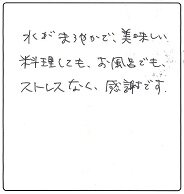 水がまろやかで、美味しい
料理しても、お風呂でも、
ストレスなく、感謝です.